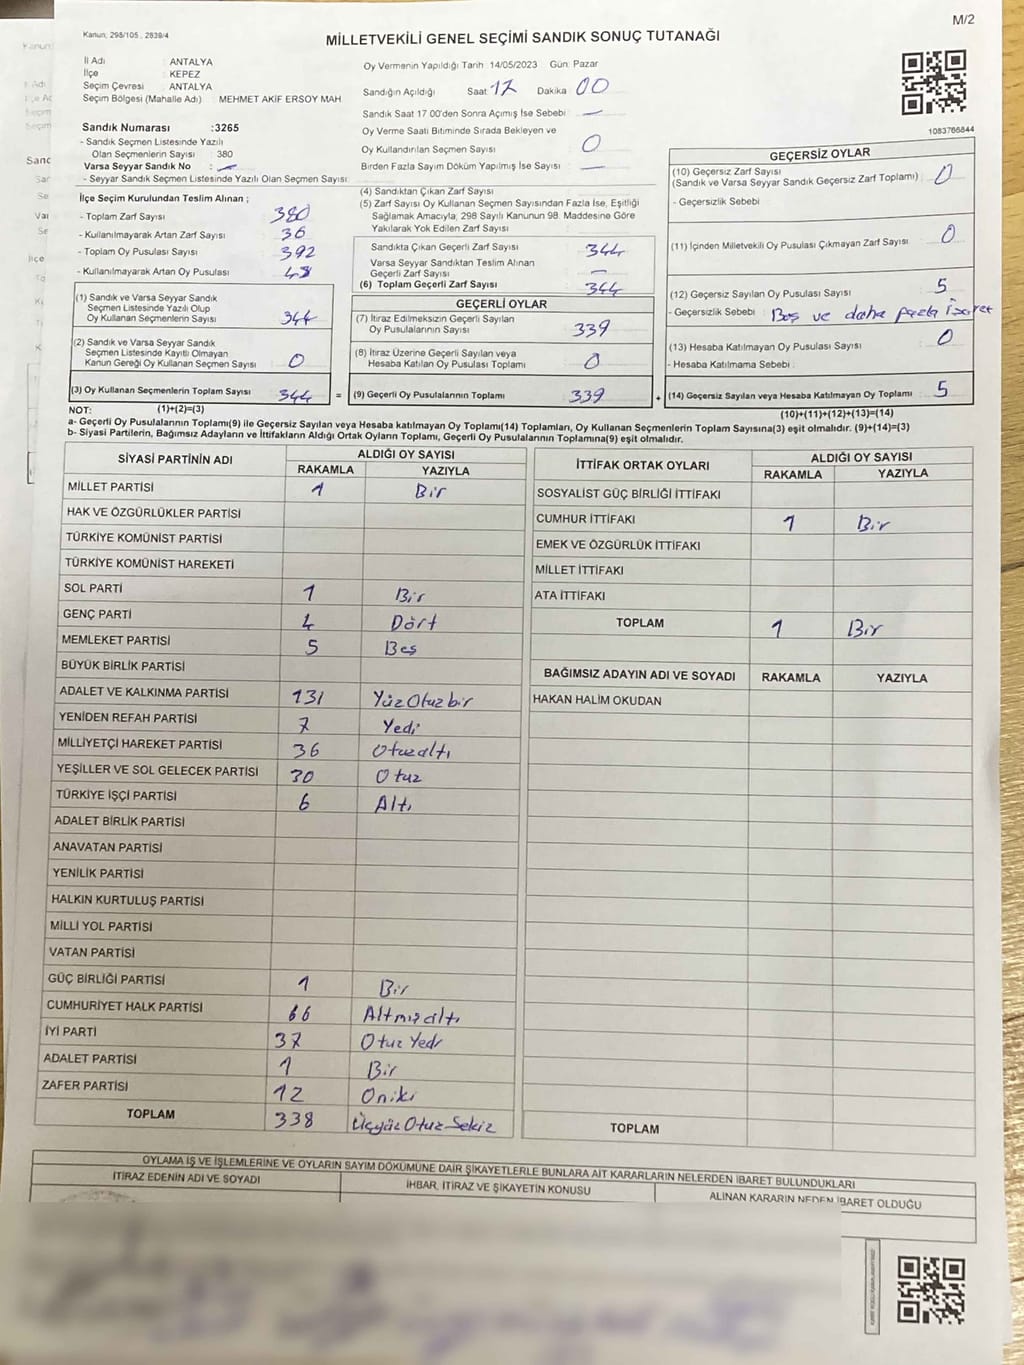 M/2
Kanun; 298/105 , 2839/4
MİLLETVEKİLİ GENEL SEÇİMİ SANDIK SONUÇ TUTANAĞI
İl Adı : ANTALYA
İlçe : KEPEZ
Seçim Çevresi : ANTALYA
Seçim Bölgesi (Mahalle Adı) : MEHMET AKİF ERSOY MAH
Sandık Numarası :3265
- Sandık Seçmen Listesinde Yazılı
Olan Seçmenlerin Sayısı : 380
Varsa Seyyar Sandık No : —
- Seyyar Sandık Seçmen Listesinde Yazılı Olan Seçmen Sayısı:
Oy Vermenin Yapıldığı Tarih :14/05/2023 Gün: Pazar
Sandığın Açıldığı Saat 17 Dakika 00
Sandık Saat 17.00'den Sonra Açmış İse Sebebi : —
Oy Verme Saati Bitiminde Sırada Bekleyen ve
Oy Kullandırılan Seçmen Sayısı : 0
Birden Fazla Sayım Döküm Yapılmış İse Sayısı : —
1083766844
İlçe Seçim Kurulundan Teslim Alınan ;
- Toplam Zarf Sayısı : 380
- Kullanılmayarak Artan Zarf Sayısı : 36
- Toplam Oy Pusulası Sayısı : 392
- Kullanılmayarak Artan Oy Pusulası : 48
(1) Sandık ve Varsa Seyyar Sandık
Seçmen Listesinde Yazılı Olup
Oy Kullanan Seçmenlerin Sayısı : 344
(2) Sandık ve Varsa Seyyar Sandık
Seçmen Listesinde Kayıtlı Olmayan
Kanun Gereği Oy Kullanan Seçmen Sayısı : 0
(3) Oy Kullanan Seçmenlerin Toplam Sayısı : 344 =
(4) Sandıktan Çıkan Zarf Sayısı
(5) Zarf Sayısı Oy Kullanan Seçmen Sayısından Fazla İse, Eşitliği
Sağlamak Amacıyla; 298 Sayılı Kanunun 98. Maddesine Göre
Yakılarak Yok Edilen Zarf Sayısı :
Sandıkta Çıkan Geçerli Zarf Sayısı : 344
Varsa Seyyar Sandıktan Teslim Alınan
Geçerli Zarf Sayısı : —
(6) Toplam Geçerli Zarf Sayısı : 344
GEÇERLİ OYLAR
(7) İtiraz Edilmeksizin Geçerli Sayılan
Oy Pusulalarının Sayısı : 339
(8) İtiraz Üzerine Geçerli Sayılan veya
Hesaba Katılan Oy Pusulası Toplamı : 0
(9) Geçerli Oy Pusulalarının Toplamı : 339 +
GEÇERSİZ OYLAR
(10) Geçersiz Zarf Sayısı
(Sandık ve Varsa Seyyar Sandık Geçersiz Zarf Toplamı) : 0
- Geçersizlik Sebebi
(11) İçinden Milletvekili Oy Pusulası Çıkmayan Zarf Sayısı : 0
(12) Geçersiz Sayılan Oy Pusulası Sayısı : 5
- Geçersizlik Sebebi : Boş ve daha fazla İşaret
(13) Hesaba Katılmayan Oy Pusulası Sayısı : 0
- Hesaba Katılmama Sebebi :
(14) Geçersiz Sayılan veya Hesaba Katılmayan Oy Toplamı : 5
NOT: (1)+(2)=(3)
(10)+(11)+(12)+(13)=(14)
a- Geçerli Oy Pusulalarının Toplamı(9) ile Geçersiz Sayılan veya Hesaba katılmayan Oy Toplamı(14) Toplamları, Oy Kullanan Seçmenlerin Toplam Sayısına(3) eşit olmalıdır. (9)+(14)=(3)
b- Siyasi Partilerin, Bağımsız Adayların ve İttifakların Aldığı Ortak Oyların Toplamı, Geçerli Oy Pusulalarının Toplamına(9) eşit olmalıdır.
SİYASİ PARTİNİN ADI ALDIĞI OY SAYISI
RAKAMLA YAZIYLA
MİLLET PARTİSİ 1 Bir
HAK VE ÖZGÜRLÜKLER PARTİSİ
TÜRKİYE KOMÜNİST PARTİSİ
TÜRKİYE KOMÜNİST HAREKETİ
SOL PARTİ 1 Bir
GENÇ PARTİ 4 Dört
MEMLEKET PARTİSİ 5 Beş
BÜYÜK BİRLİK PARTİSİ
ADALET VE KALKINMA PARTİSİ 131 Yüz Otuz bir
YENİDEN REFAH PARTİSİ 7 Yedi
MİLLİYETÇİ HAREKET PARTİSİ 36 Otuzaltı
YEŞİLLER VE SOL GELECEK PARTİSİ 30 Otuz
TÜRKİYE İŞÇİ PARTİSİ 6 Altı
ADALET BİRLİK PARTİSİ
ANAVATAN PARTİSİ
YENİLİK PARTİSİ
HALKIN KURTULUŞ PARTİSİ
MİLLİ YOL PARTİSİ
VATAN PARTİSİ
GÜÇ BİRLİĞİ PARTİSİ 1 Bir
CUMHURİYET HALK PARTİSİ 66 Altmışaltı
İYİ PARTİ 37 Otuz Yedi
ADALET PARTİSİ 1 Bir
ZAFER PARTİSİ 12 Oniki
TOPLAM 338 Üçyüz Otuz Sekiz
İTTİFAK ORTAK OYLARI ALDIĞI OY SAYISI
RAKAMLA YAZIYLA
SOSYALİST GÜÇ BİRLİĞİ İTTİFAKI
CUMHUR İTTİFAKI 1 Bir
EMEK VE ÖZGÜRLÜK İTTİFAKI
MİLLET İTTİFAKI
ATA İTTİFAKI
TOPLAM 1 Bir
BAĞIMSIZ ADAYIN ADI VE SOYADI RAKAMLA YAZIYLA
HAKAN HALİM OKUDAN
TOPLAM
OYLAMA İŞ VE İŞLEMLERİNE VE OYLARIN SAYIM DÖKÜMÜNE DAİR ŞİKAYETLERLE BUNLARA AİT KARARLARIN NELERDEN İBARET BULUNDUKLARI
İTİRAZ EDENİN ADI VE SOYADI İHBAR, İTİRAZ VE ŞİKAYETİN KONUSU ALINAN KARARIN NEDEN İBARET OLDUĞU